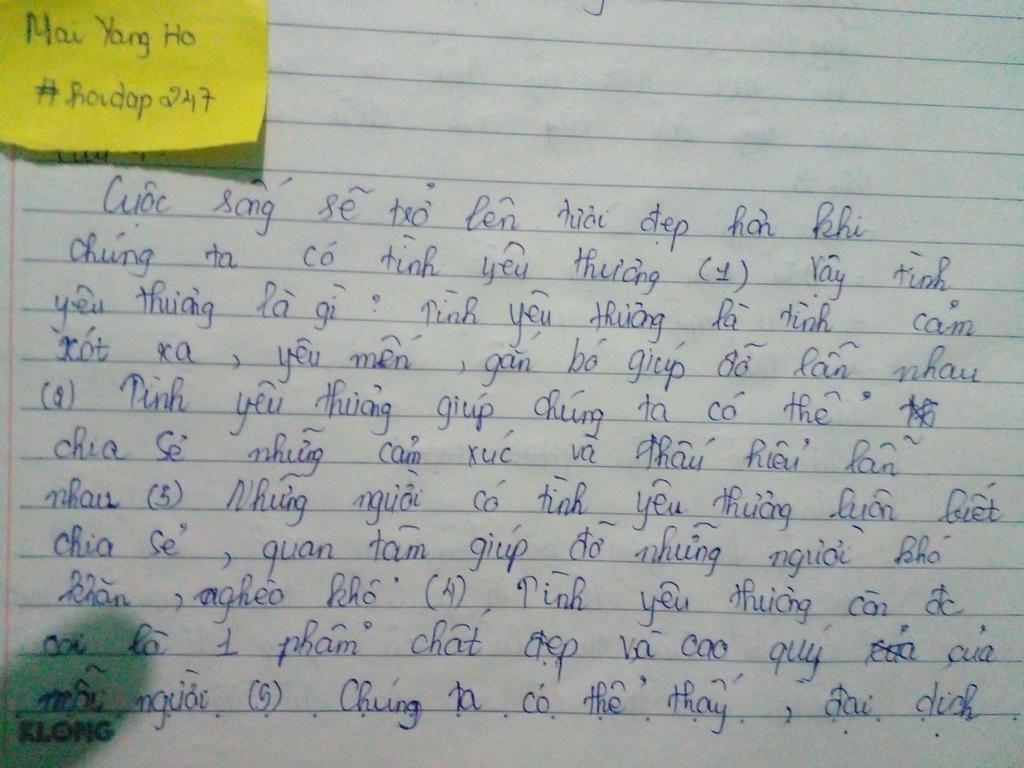 Mai Yang Ho
#hoidap247
Cuộc sống sẽ trở lên tươi đẹp hơn khi
chúng ta có tình yêu thương (1) Vậy tình
yêu thương là gì : Tình yêu thương là tình cảm
xót xa , yêu mến , gắn bó giúp đỡ lẫn nhau
(2) Tình yêu thương giúp chúng ta có thể
chia sẻ những cảm xúc và thấu hiểu lẫn
nhau (3) Những người có tình yêu thương luôn biết
chia sẻ , quan tâm giúp đỡ những người khó
khăn , nghèo khổ (4) Tình yêu thương còn đc
coi là 1 phẩm chất đẹp và cao quý của
mỗi người (5) Chúng ta có thể thấy , đại dịch
KLONG